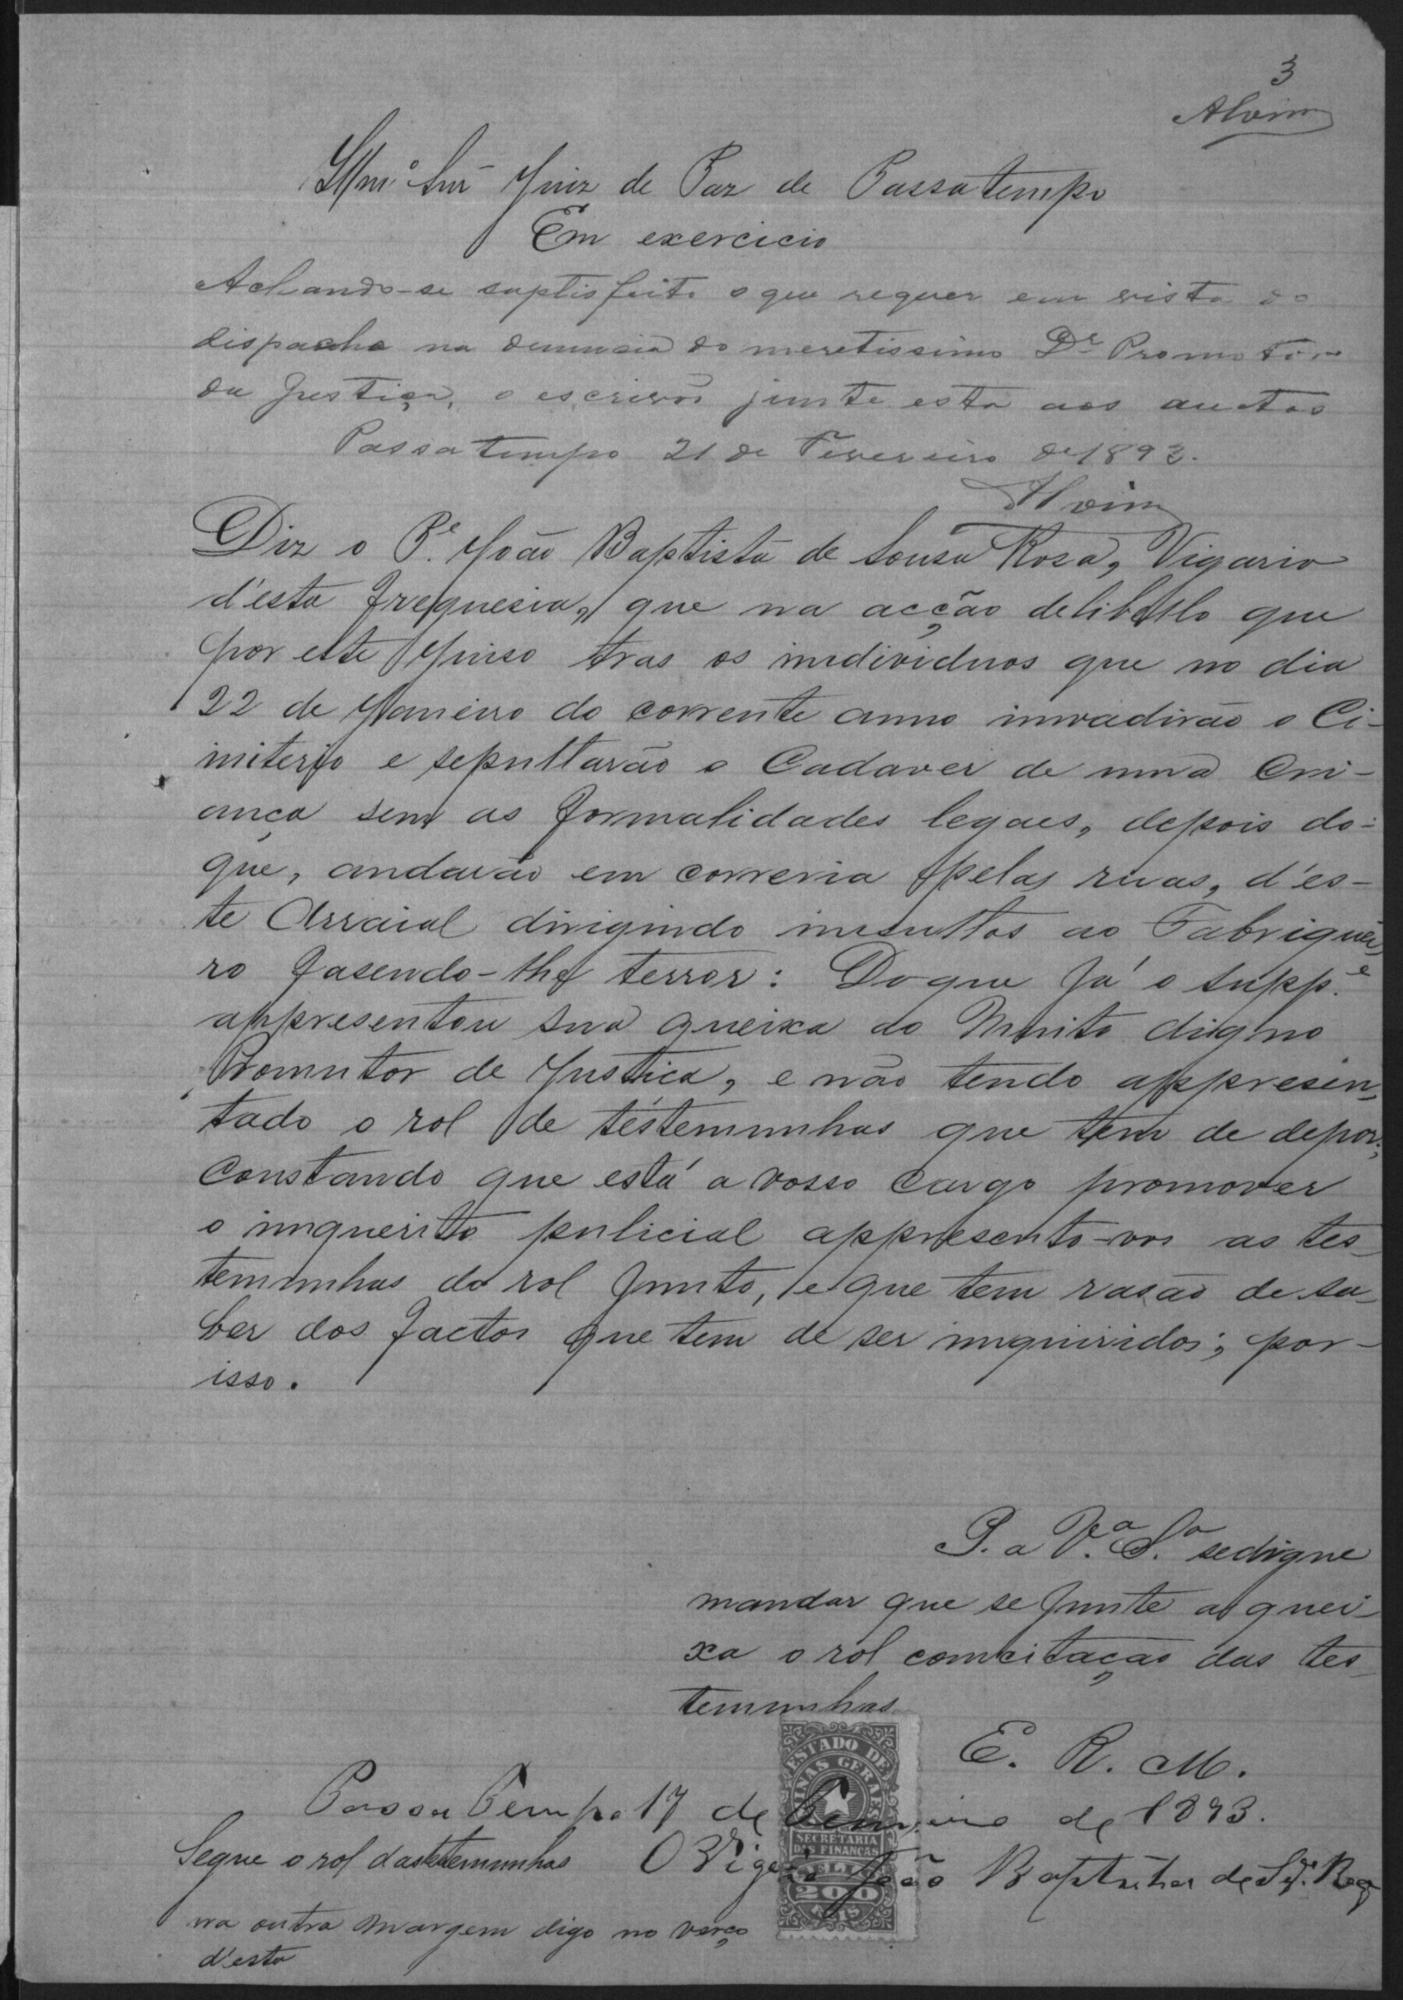 3
Alvim
Illmº Snr Juiz de Paz de Passatempo
Em exercicio
Achando-se saptisfeito o que requer em vista do
dispacho na denuncia do meretissimo Dr Promotor
da Justiça, o escrivão junte esta aos auctos
Passatempo 21 de Fevereiro de 1893.
Alvim
Diz o Pe. João Baptista de Sousa Rosa, Vigario
d'esta freguesia, que na acção de libello que
por este Juiso tras os individuos que no dia
22 de Janeiro do corrente anno invadirão o Ci-
miterio e sepultarão o Cadaver de uma Cri-
ança sem as formalidades legaes, depois do-
que, andarão em correria pelas ruas, d'es-
te Arraial dirigindo insultos ao Fabriquei-
ro fasendo-lhe terror: Do que já o suppe.
appresentou sua queixa ao Muito digno
Promutor de Justica, e não tendo appresen-
tado o rol de testemunhas que tem de depor;
Constando que está a vosso Cargo promover
o inquerito pulicial appresento-vos as tes-
temunhas do rol junto, e que tem rasão de sa-
ber dos factos que tem de ser inquiridos; por-
isso.
P. a Va. Sa. se digne
mandar que se junte a quei-
xa o rol com citação das tes-
temunhas
E. R. M.
Passa Tempo 17 de de 1893.
Segue o rol das testemunhas O Vigario João Baptista de Sza. Rosa
na outra margem digo no verço
d'esta
ESTADO DE
MINAS GERAES
SECRETARIA
DAS FINANÇAS
SELLO
200
RÉIS